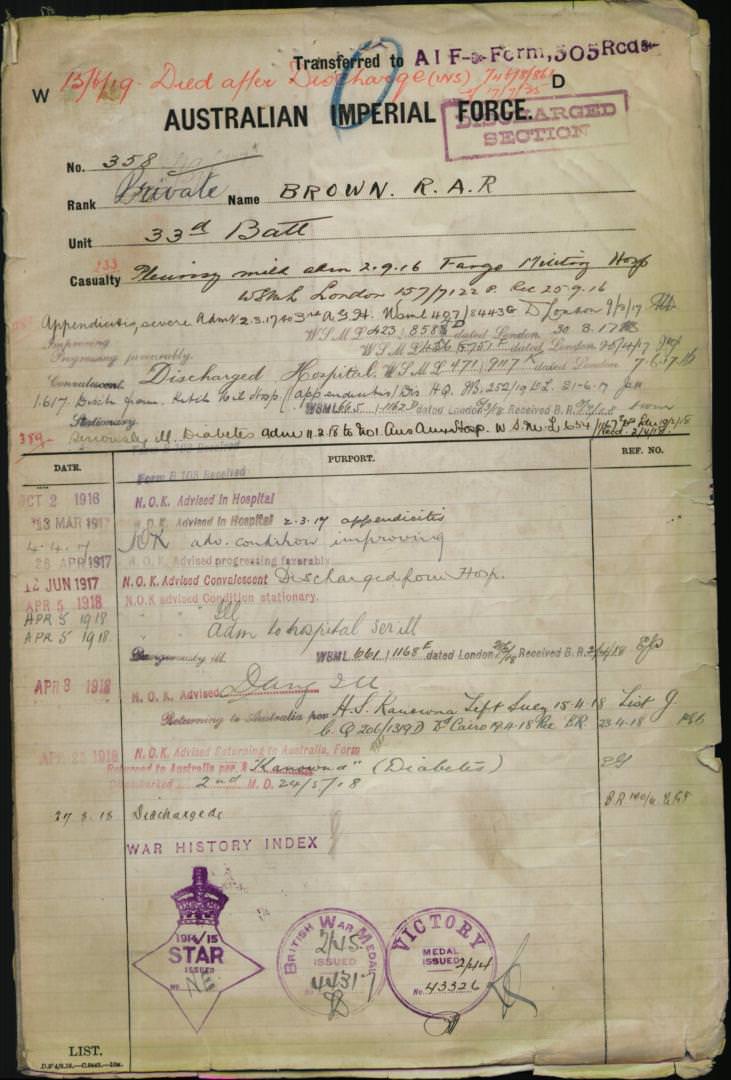 Transferred to AIF Form 505 Rcds
W 13/6/19. Died after Discharge (VNS) D
AUSTRALIAN IMPERIAL FORCE.
DISCHARGED
SECTION
No. 358
Rank Private Name BROWN. R. A. R
Unit 33rd Batt
233
Casualty Pleurisy mild adm 2.9.16 Fargo Military Hosp
WSML London 157/7122 Rec 25.9.16
Appendicitis, severe Admt 2.3.17 to 3rd A.G.H. WSML 407/8443 D London 9/3/17
Improving WSML 423/8588 D dated London 30.3.17
Progressing favorably. WSML 436 8751 F dated London
Convalescent Discharged Hospital. WSML 471/9117 K dated London 7.6.17
1.6.17 Disch from Hosp. (appendicitis) HQ 252/19 DL 21-6-17
Stationary. WSML 665/1162 D dated London Received B.R.
389 Seriously ill. Diabetes adm 11.2.18 to No1 Aus Aux Hosp. W.S.M.L 654/1167
Form B 103 Received
DATE. PURPORT. REF. NO.
Form B 103 Received
OCT 2 1916 N.O.K. Advised in Hospital
13 MAR 1917 N.O.K. Advised in Hospital 2.3.17 appendicitis
4.4.17 NOK adv. condition improving
26 APR 1917 N.O.K. Advised progressing favorably
12 JUN 1917 N.O.K. Advised Convalescent Discharged from Hosp.
APR 5 1918 N.O.K advised Condition stationary.
APR 5 1918 " " Ill
APR 5 1918 " " Adm to hospital ser ill
Dangerously ill WSML 661/1168 E dated London Received B.R. 2/4/18
APR 3 1918 N.O.K. Advised Dang Ill
Returning to Australia per H.S. Kanowna Left Suez 15-4-18 List
C.Q 206/1319 D Dd Cairo 19.4.18 Rec BR 23.4.18
APR 25 1918 N.O.K. Advised Returning to Australia, Form
Returned to Australia per. "Kanowna" (Diabetes)
Disembarked 2nd M.D. 24/5/18
27.8.18 Discharged
WAR HISTORY INDEX
1914/15
STAR
ISSUED
No. Nil
BRITISH WAR MEDAL
2/45
ISSUED
44317
VICTORY
MEDAL
ISSUED 2/44
No. 43326
LIST.